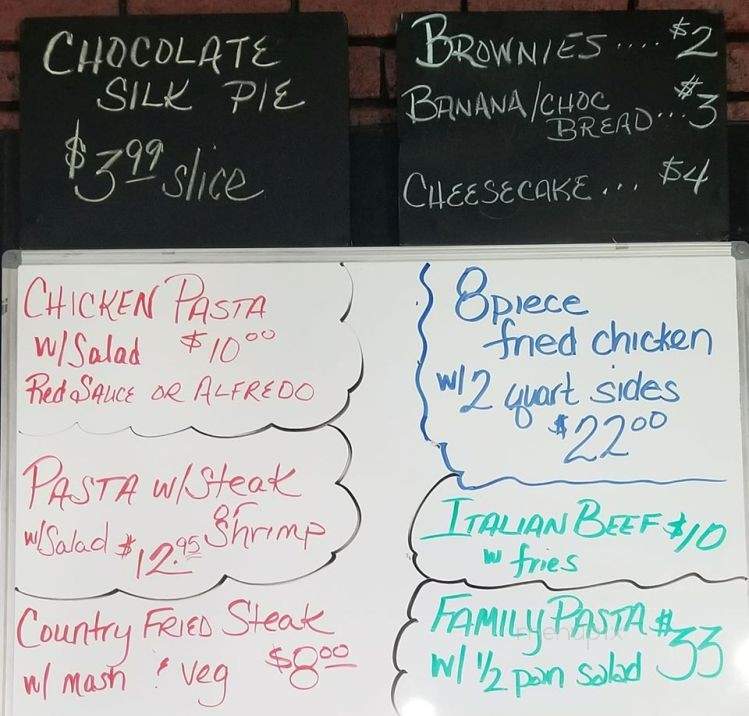 CHOCOLATE
SILK PIE
$3.99 slice
BROWNIES.... $2
BANANA/CHOC
BREAD... $3
CHEESECAKE... $4
CHICKEN PASTA
w/Salad $10.00
Red SAUCE OR ALFREDO
PASTA w/Steak
or
w/Salad $12.95 Shrimp
Country FRIED Steak
w/ mash & veg $8.00
8 piece
fried chicken
w/2 quart sides
$22.00
ITALIAN BEEF $10
w fries
FAMILY PASTA $33
w/ 1/2 pan salad